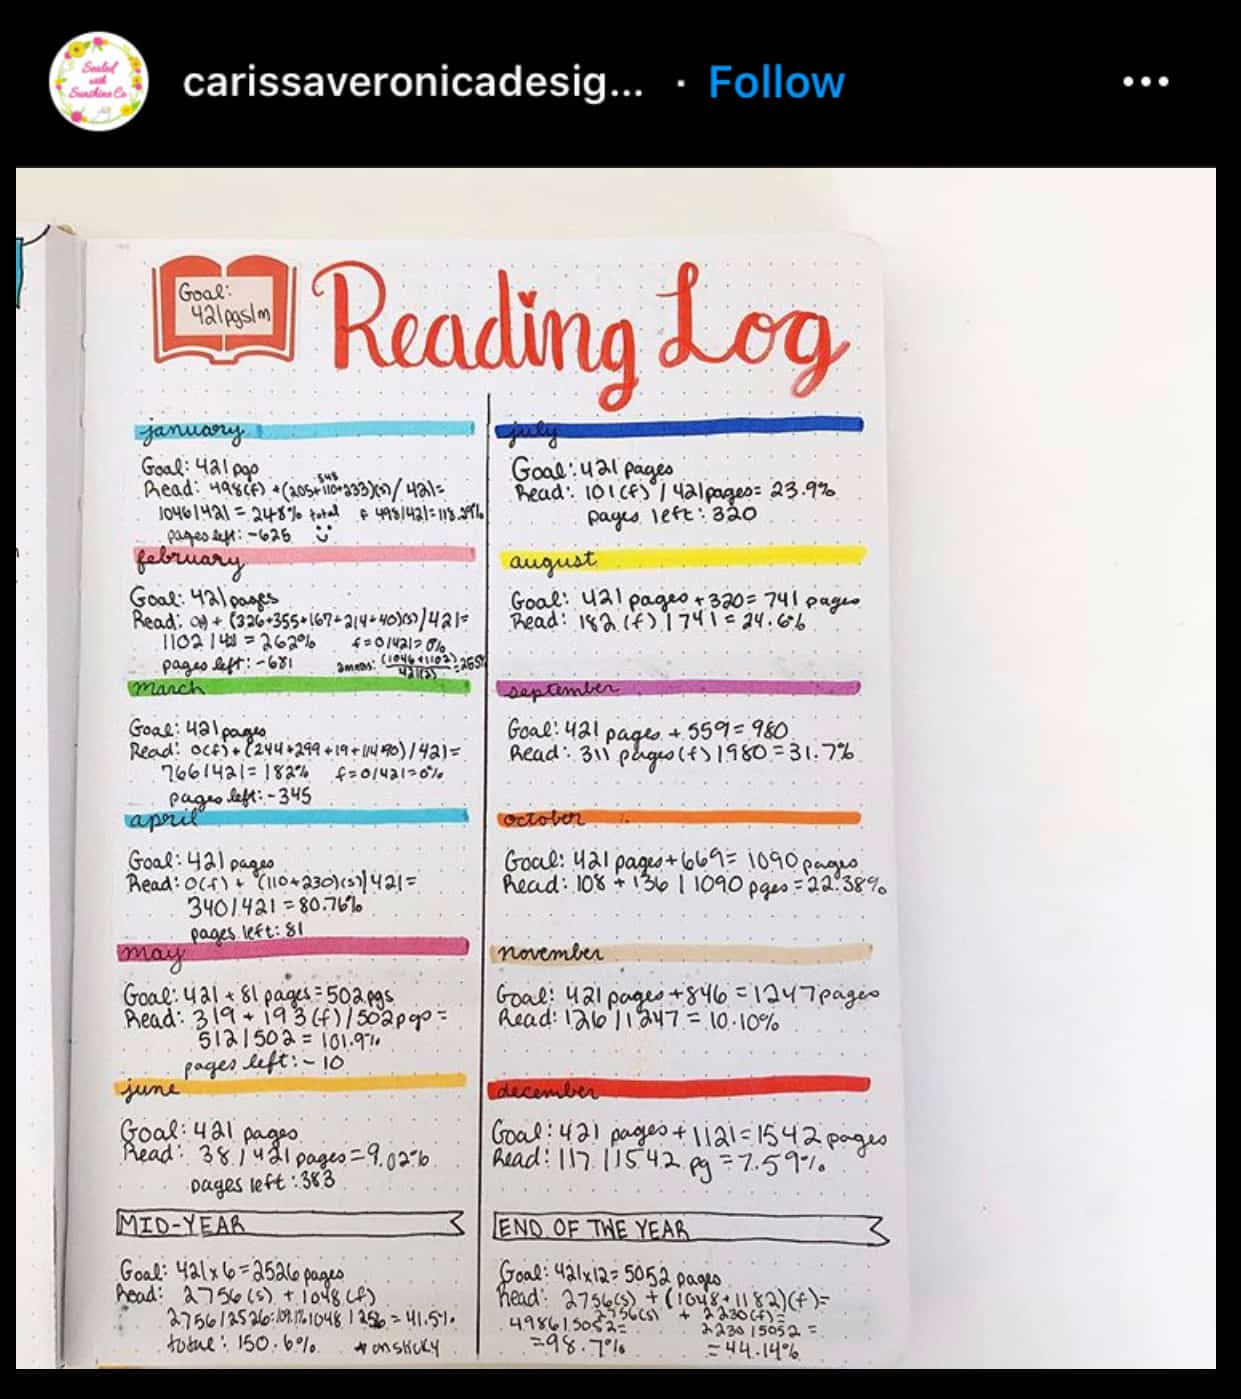 Sealed
with
Sunshine Co
carissaveronicadesig... · Follow
Goal:
421pgs/m
Reading Log
january
Goal: 421 pgs
548
Read: 498(f) + (205+110+233)(s) / 421=
1046/421 = 248% total f 498/421=118.29%
pages left: -625
february
Goal: 421 pages
Read: 0(f) + (326+355+167+214+40)(s)/421=
1102/421 = 262% f=0/421=0%
pages left: -681 2mean: (1046+1102)/421(2) =255%
march
Goal: 421 pages
Read: 0(f) + (244+299+19+114+90)/421=
766/421= 182% f=0/421=0%
pages left: -345
april
Goal: 421 pages
Read: 0(f) + (110+230)(s)/421=
340/421 = 80.76%
pages left: 81
may
Goal: 421 + 81 pages = 502 pgs
Read: 319 + 193(f)/502pgs =
512/502 = 101.9%
pages left: -10
june
Goal: 421 pages
Read: 38/421 pages = 9.02%
pages left: 383
MID-YEAR
Goal: 421x6=2526 pages
Read: 2756(s) + 1048(f)
2756/2526=109.1% 1048/ = 41.5%
total: 150.6% * on sticky
july
Goal: 421 pages
Read: 101(f) / 421pages= 23.9%
pages left: 320
august
Goal: 421 pages + 320= 741 pages
Read: 182 (f) / 741 = 24.6%
september
Goal: 421 pages + 559= 980
Read: 311 pages(f) /980 = 31.7%
october
Goal: 421 pages + 669= 1090 pages
Read: 108 + 136 / 1090 pges = 22.38%
november
Goal: 421 pages + 846 = 1247 pages
Read: 126/1247 = 10.10%
december
Goal: 421 pages + 1121=1542 pages
Read: 117/1542 pg = 7.59%
END OF THE YEAR
Goal: 421x12= 5052 pages
Read: 2756(s) + (1048+1182)(f)=
2756(s) + 2230(f)=
4986/5052= 2230/5052 =
=98.7% = 44.14%